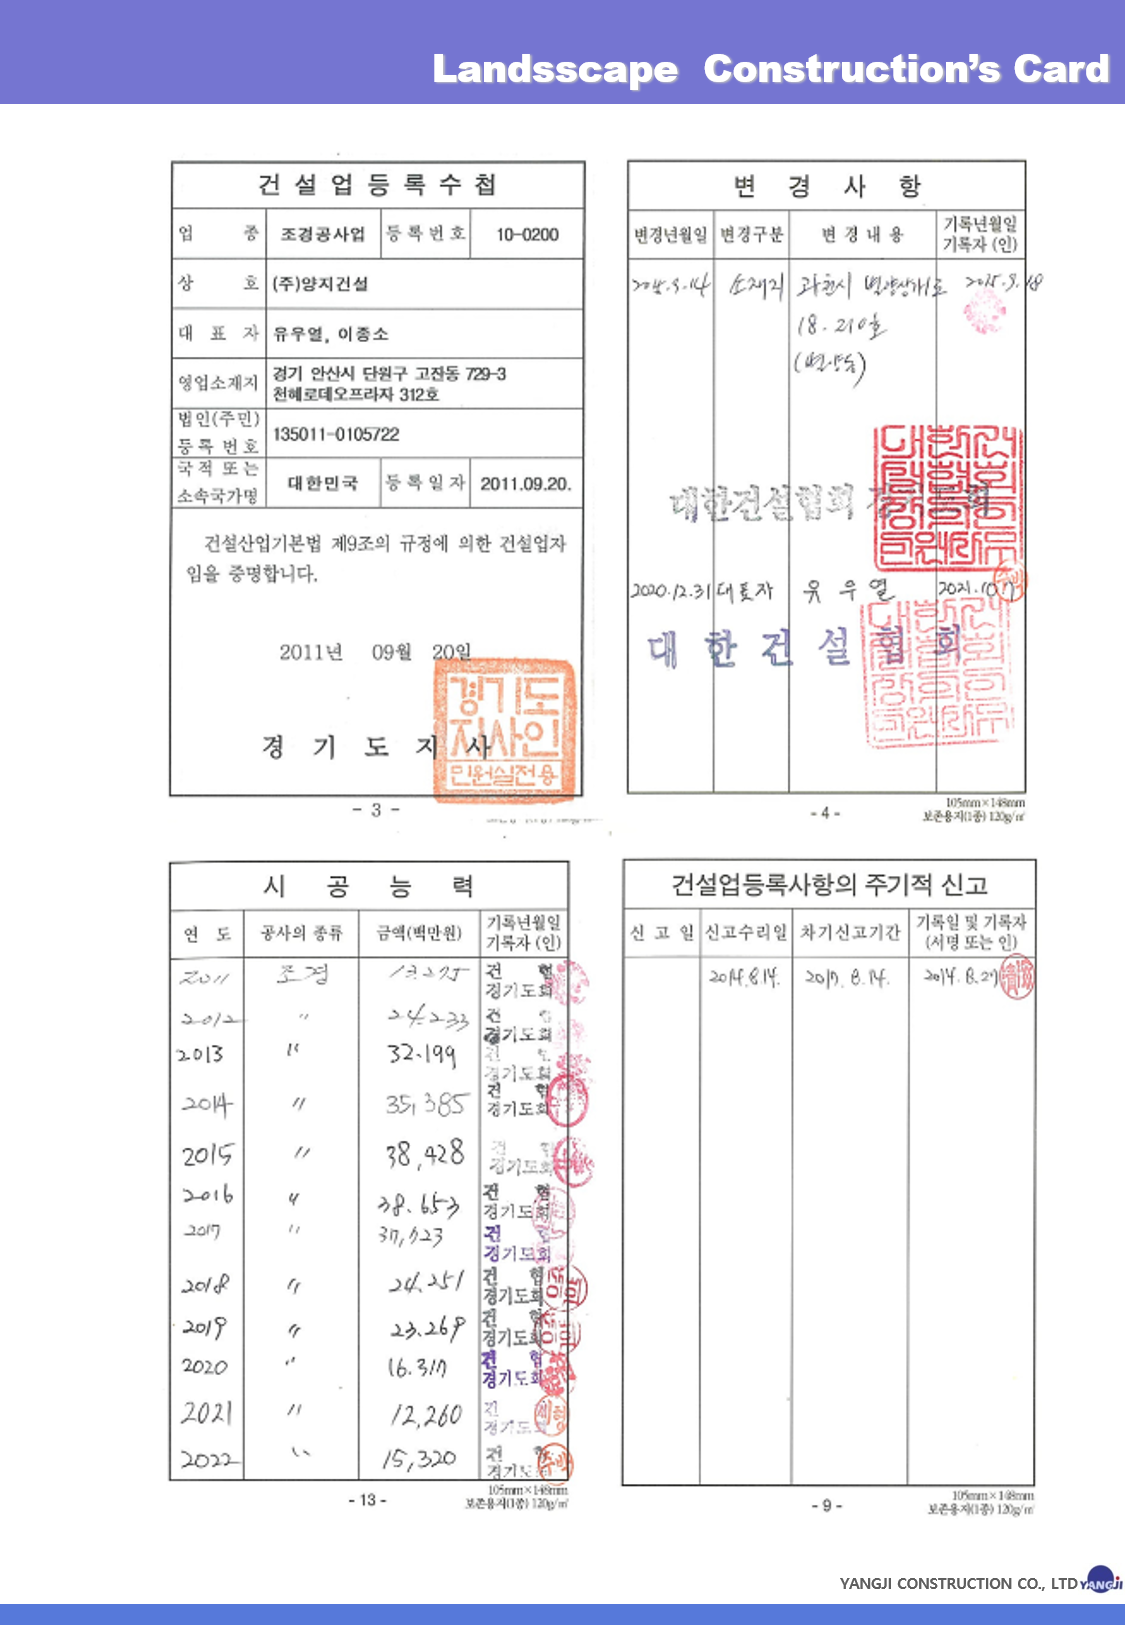 Landsscape Construction's Card
건 설 업 등 록 수 첩
업 종 조경공사업 등 록 번 호 10-0200
상 호 (주)양지건설
대 표 자 유우열, 이종소
영업소재지 경기 안산시 단원구 고잔동 729-3
천혜로데오프라자 312호
법인(주민)
등 록 번 호 135011-0105722
국 적 또 는
소속국가명 대한민국 등 록 일 자 2011.09.20.
건설산업기본법 제9조의 규정에 의한 건설업자
임을 증명합니다.
2011년 09월 20일
경 기 도 지 사
경기도
지사인
민원실전용
- 3 -
변 경 사 항
변경년월일 변경구분 변 경 내 용 기록년월일
기록자 (인)
2015.9.14 소재지 과천시 별양상가로 2015.9.18
18. 210호
(별양동)
대한건설협회 경기도회
2020.12.31 대표자 유 우 열 2021.10
대 한 건 설 협 회
105mm×148mm
- 4 -
보존용지(1종) 120g/㎡
시 공 능 력
연 도 공사의 종류 금액(백만원) 기록년월일
기록자 (인)
2011 조경 13.275 건 협
경기도회
2012 〃 24.233 건 협
경기도회
2013 〃 32.199 건 협
경기도회
2014 〃 35,385 건 협
경기도회
2015 〃 38,428 건 협
경기도회
2016 〃 38.653 건 협
경기도회
2017 〃 건 협
경기도회
2018 〃 24.251 건 협
경기도회
2019 〃 23.269 건 협
경기도회
2020 〃 16.317 건 협
경기도회
2021 〃 12,260 건
경기도회
2022 〃 15,320 건 협
경기도회
105mm×148mm
- 13 -
보존용지(1종) 120g/㎡
건설업등록사항의 주기적 신고
신 고 일 신고수리일 차기신고기간 기록일 및 기록자
(서명 또는 인)
2014.8.14. 2017. 8. 14. 2014. 8.27
105mm×148mm
- 9 -
보존용지(1종) 120g/㎡
YANGJI CONSTRUCTION CO., LTD YANGJI